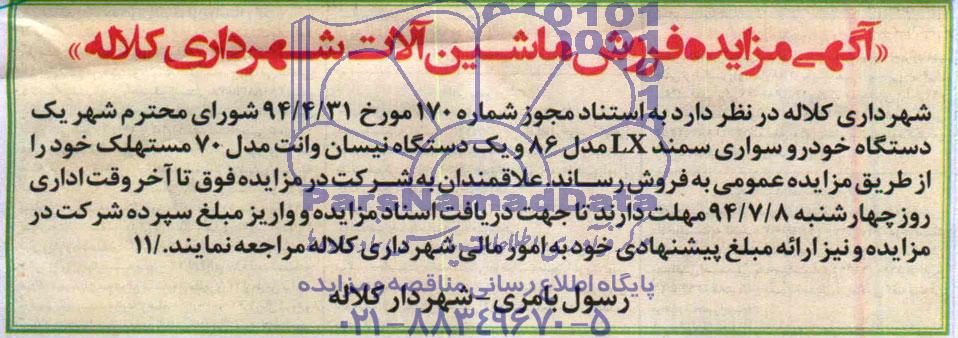 «آگهی مزایده فروش ماشین آلات شهرداری کلاله»
شهرداری کلاله در نظر دارد به استناد مجوز شماره ۱۷۰ مورخ ۹۴/۴/۳۱ شورای محترم شهر یک
دستگاه خودرو سواری سمند LX مدل ۸۶ و یک دستگاه نیسان وانت مدل ۷۰ مستهلک خود را
از طریق مزایده عمومی به فروش رساند. علاقمندان به شرکت در مزایده فوق تا آخر وقت اداری
ParsNamadData
روز چهارشنبه ۹۴/۷/۸ مهلت دارند تا جهت دریافت اسناد مزایده و واریز مبلغ سپرده شرکت در
مزایده و نیز ارائه مبلغ پیشنهادی خود به امور مالی شهرداری کلاله مراجعه نمایند./۱۱
پایگاه اطلاع رسانی مناقصه و مزایده
رسول بامری - شهردار کلاله
۰۲۱-۸۸۳۴۹۶۷۰-۵